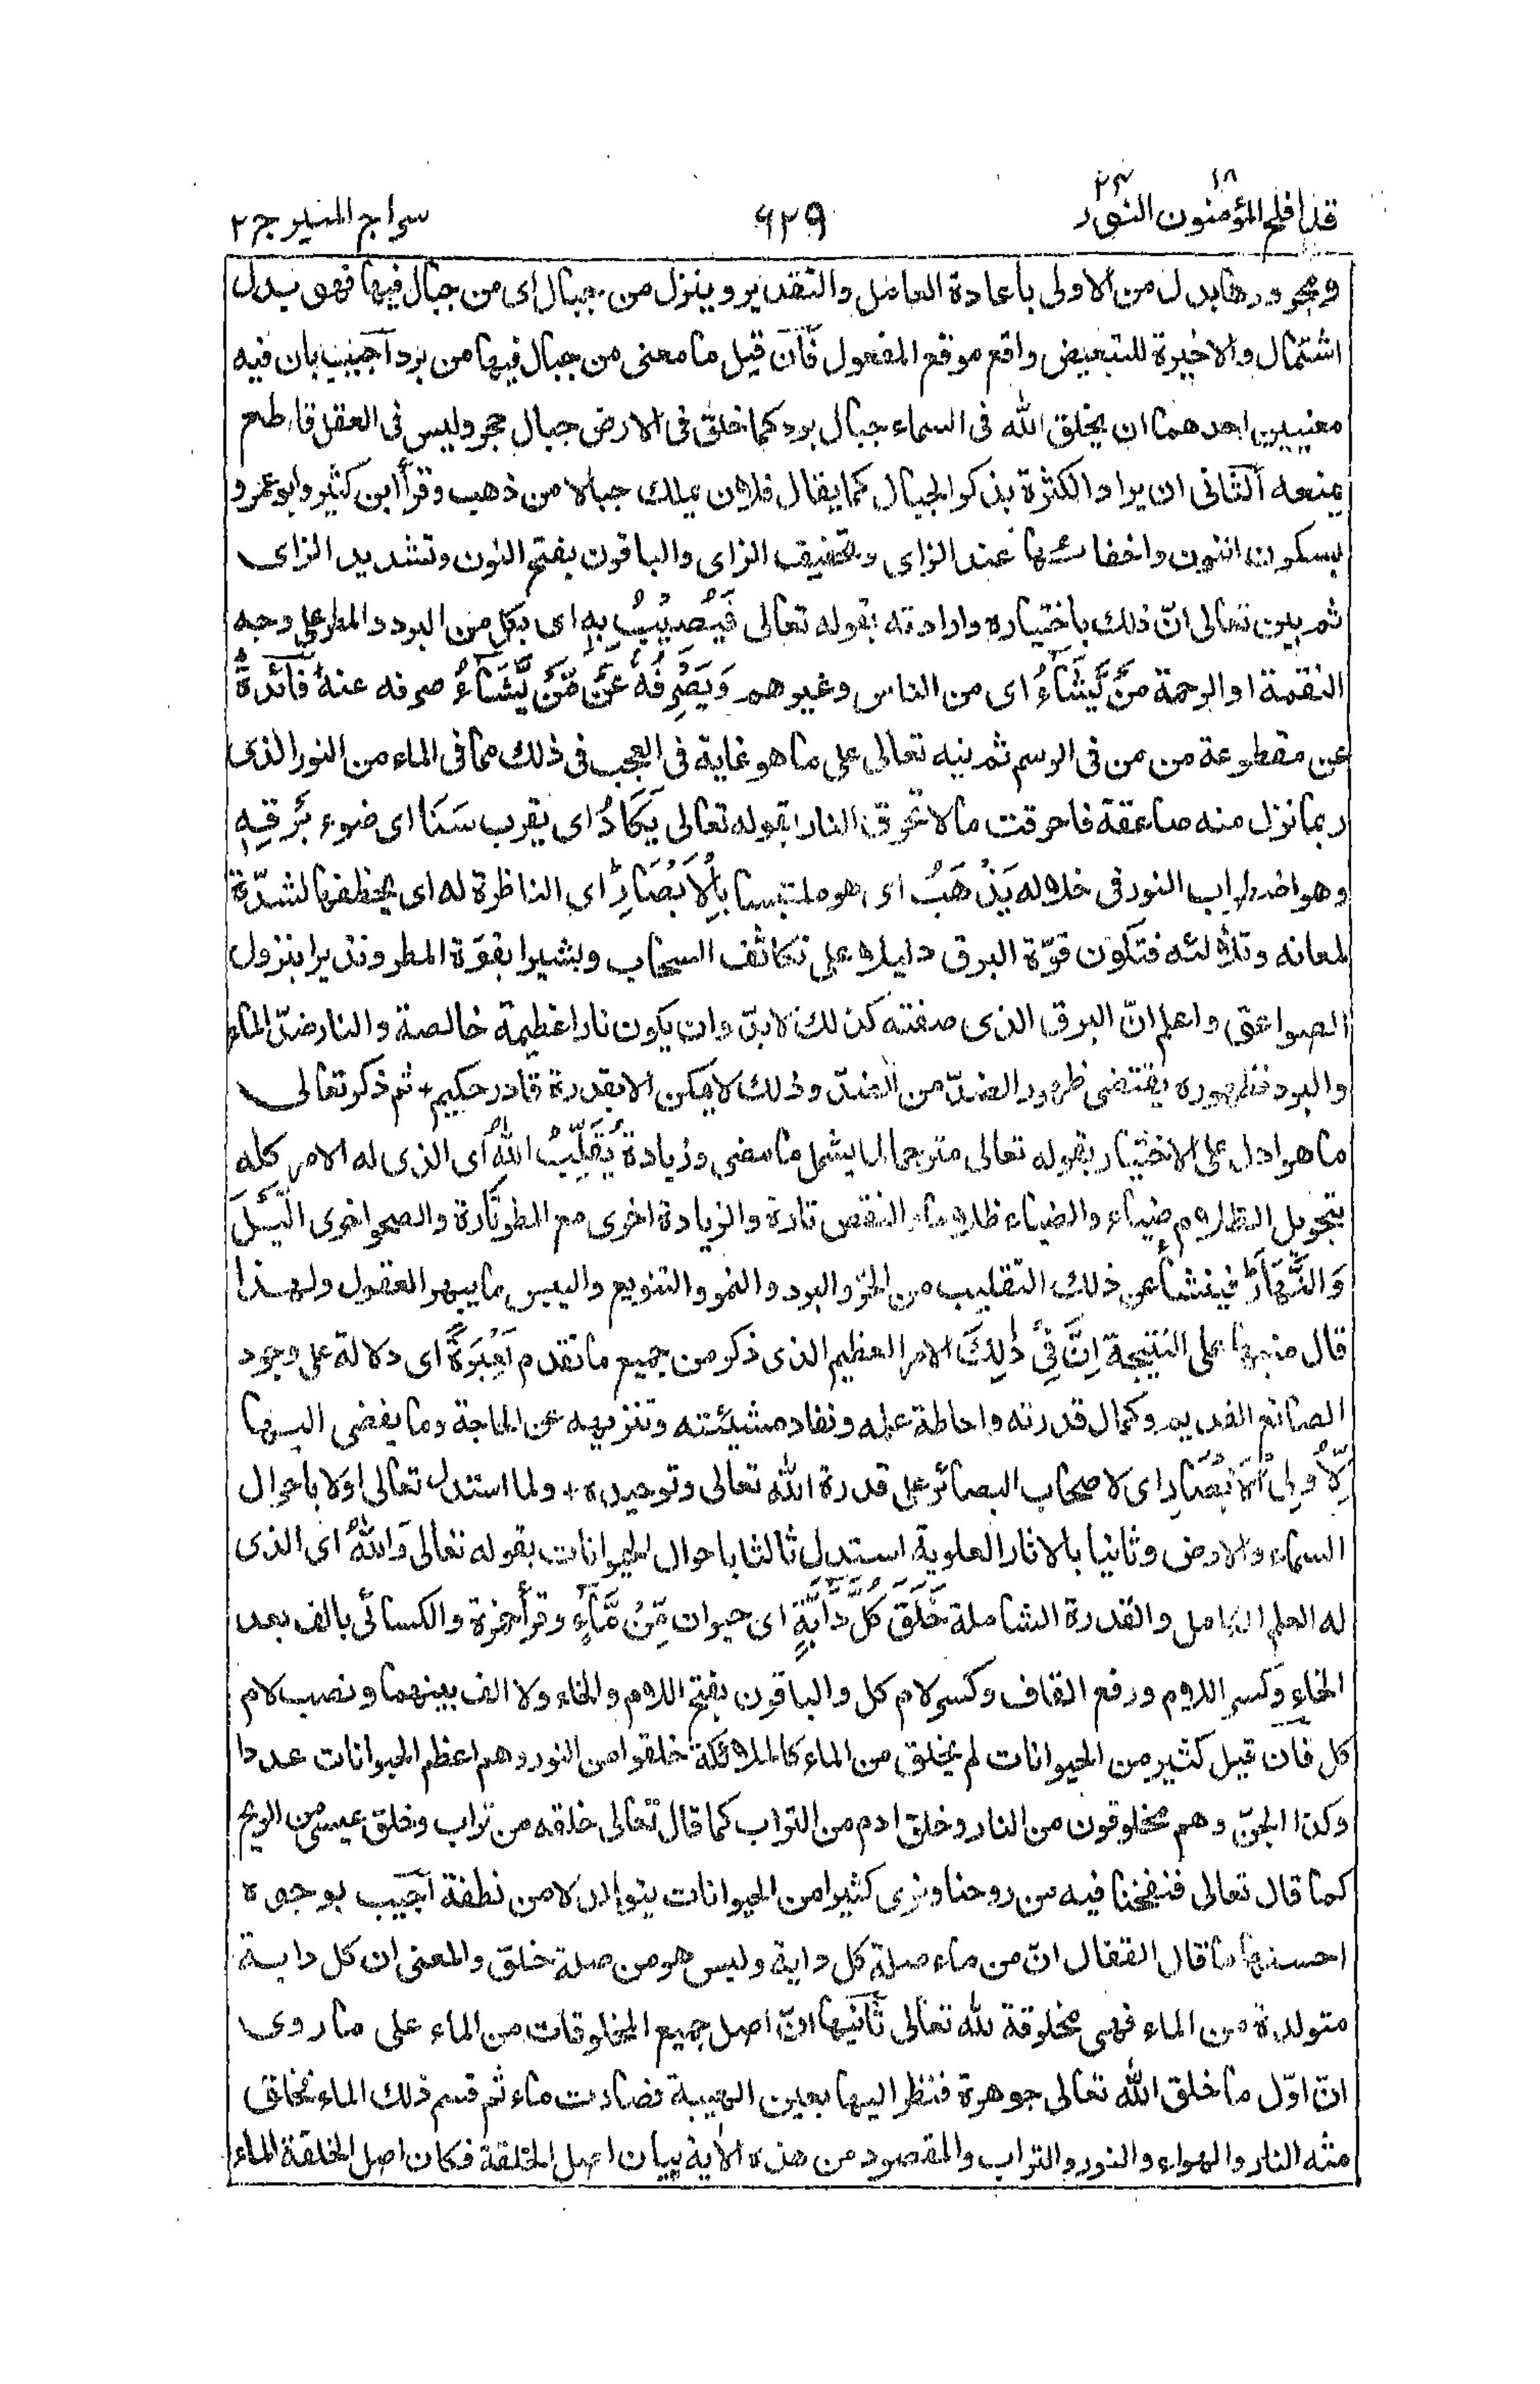 قد افلح المؤمنون ١٨ النور ٢٤
٦٢٩
سراج المنير ج ٢
ومجرورها بدل من الاولى باعادة العامل والتقدير وينزل من جبال اى من جبال فيها فهو بدل
اشتمال والاخيرة للتبعيض واقع موقع المفعول فان قيل ما معنى من جبال فيها من برد اجيب بان فيه
معنيين احدهما ان يخلق الله فى السماء جبال برد كما خلق فى الارض جبال حجر وليس فى العقل قاطع
يمنعه الثانى ان يراد الكثرة بذكر الجبال كما يقال فلان يملك جبالا من ذهب وقرأ ابن كثير وابو عمرو
بسكون النون واخفائها عند الزاى وتخفيف الزاى والباقون بفتح النون وتشديد الزاى
ثم بين تعالى انّ ذلك باختياره وارادته بقوله تعالى فَيُصِيْبُ بِهٖ اى بكل من البرد والمطر على وجه
النقمة او الرحمة مَنْ يَّشَآءُ اى من الناس وغيرهم وَيَصْرِفُهٗ عَنْ مَّنْ يَّشَآءُ صرفه عنه فائدة
عن مقطوعة من من فى الرسم ثم نبه تعالى على ما هو غاية فى العجب فى ذلك مما فى الماء من النور الذى
ربما نزل منه صاعقة فاحرقت ما لا تحرق النار بقوله تعالى يَكَادُ اى يقرب سَنَا اى ضوء بَرْقِهٖ
وهو اضطراب النور فى خلاله يَذْهَبُ اى هو ملتبسا بِالْاَبْصَارِ اى الناظرة له اى يخطفها لشدّة
لمعانه وتلألئه فتكون قوّة البرق دليلا على تكاثف السحاب وبشيرا بقوّة المطر ونذيرا بنزول
الصواعق واعلم انّ البرق الذى صفته كذلك لابدّ وان يكون نارا عظيمة خالصة والنار ضدّ الماء
والبرد فظهوره يقتضى ظهور الضدّ من الضدّ وذلك لا يمكن الا بقدرة قادر حكيم + ثم ذكر تعالى
ما هو ادل على الاختيار بقوله تعالى مترجما لما يشمل ما مضى وزيادة يُقَلِّبُ اللّٰهُ اى الذى له الامر كله
بتحويل الظلام ضياء والضياء ظلاما والنقص تارة والزيادة اخرى مع المطر تارة والصحو اخرى الَّيْلَ
وَالنَّهَارَ فينشأ عن ذلك التقليب من الحرّ والبرد والنمو والتنويع واليبس ما يبهر العقول ولهذا
قال منبها على النتيجة اِنَّ فِيْ ذٰلِكَ الامر العظيم الذى ذكر من جميع ما تقدم لَعِبْرَةً اى دلالة على وجود
الصانع القديم وكمال قدرته واحاطة علمه ونفاد مشيئته وتنزيهه عن الحاجة وما يفضى اليها
لِّاُولِى الْاَبْصَارِ اى لاصحاب البصائر على قدرة الله تعالى وتوحيده + ولما استدل تعالى اولا باحوال
السماء والارض وثانيا بالاثار العلوية استدل ثالثا باحوال الحيوانات بقوله تعالى وَاللّٰهُ اى الذى
له العلم الكامل والقدرة الشاملة خَلَقَ كُلَّ دَآبَّةٍ اى حيوان مِّنْ مَّآءٍ وقرأ حمزة والكسائى بالف بعد
الخاء وكسر اللام ورفع القاف وكسر لام كل والباقون بفتح اللام والخاء ولا الف بينهما ونصب لام
كل فان قيل كثير من الحيوانات لم يخلق من الماء كالملائكة خلقوا من النور وهم اعظم الحيوانات عددا
وكذا الجنّ وهم مخلوقون من النار وخلق ادم من التراب كما قال تعالى خلقه من تراب وخلق عيسى من الريح
كما قال تعالى فنفخنا فيه من روحنا ونرى كثيرا من الحيوانات يتوالد لا من نطفة اجيب بوجوه
احسنها ما قال القفال انّ من ماء صلة كل دابة وليس هو من صلة خلق والمعنى ان كل دابة
متولدة من الماء فهى مخلوقة لله تعالى ثانيها انّ اصل جميع المخلوقات من الماء على ما روى
انّ اوّل ما خلق الله تعالى جوهرة فنظر اليها بعين الهيبة فصارت ماء ثم قسم ذلك الماء فخلق
منه النار والهواء والنور والتراب والمقصود من هذه الاية بيان اصل الخلقة فكان اصل الخلقة الماء